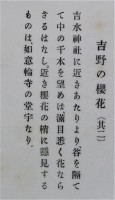 吉野の櫻花（其二）
吉水神社に近きあたりより谷を隔
て中の千本を望めば滿目悉く花なら
ざるはなし。近き櫻花の梢に隱見する
ものは、如意輪寺の堂宇なり。